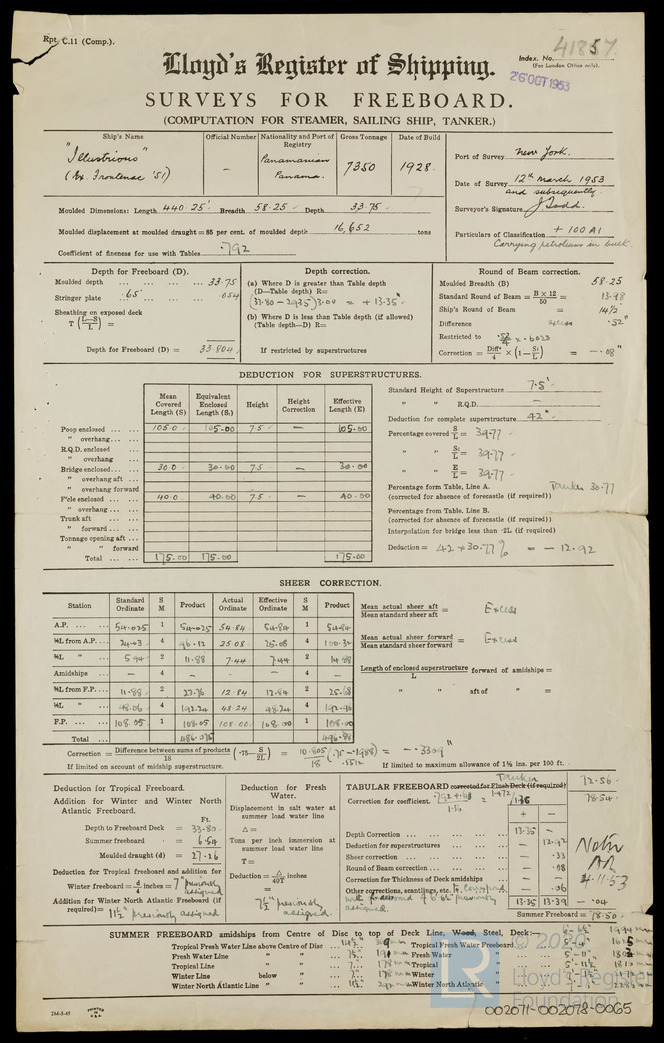 Rpt. C.11 (Comp.).
Index. No. 41857
(For London Office only).
26 OCT 1953
Lloyd's Register of Shipping.
SURVEYS FOR FREEBOARD.
(COMPUTATION FOR STEAMER, SAILING SHIP, TANKER.)
Ship's Name Official Number Nationality and Port of Registry Gross Tonnage Date of Build
"Illustrious" (Ex. Frontenac '51) – Panamanian Panama. 7350 1928
Port of Survey New York.
Date of Survey 12th March 1953 and subsequently
Surveyor's Signature J. Todd.
Particulars of Classification + 100 A1
Carrying petroleum in bulk.
Moulded Dimensions: Length 440.25' Breadth 58.25 Depth 33.75
Moulded displacement at moulded draught = 85 per cent. of moulded depth 16,652 tons
Coefficient of fineness for use with Tables .792
Depth for Freeboard (D).
Moulded depth ... 33.75
Stringer plate .65 ... .054
Sheathing on exposed deck
T (L–S/L) =
Depth for Freeboard (D) = 33.804
Depth correction.
(a) Where D is greater than Table depth
(D—Table depth) R=
(33.80 - 29.35) 3.00 = + 13.35"
(b) Where D is less than Table depth (if allowed)
(Table depth—D) R=
If restricted by superstructures
Round of Beam correction.
Moulded Breadth (B) 58.25
Standard Round of Beam = B × 12/50 = 13.98
Ship's Round of Beam = 14½"
Difference excess .52"
Restricted to .52/4 × .6023
Correction = Diff/4 × (1 – S₁/L) = –.08"
DEDUCTION FOR SUPERSTRUCTURES.
Mean Covered Length (S) Equivalent Enclosed Length (S₁) Height Height Correction Effective Length (E)
Poop enclosed ... 105.0 105.00 7.5 – 105.00
" overhang...
R.Q.D. enclosed
" overhang
Bridge enclosed... 30.0 30.00 7.5 – 30.00
" overhang aft ...
" overhang forward
F'cle enclosed ... 40.0 40.00 7.5 – 40.00
" overhang ...
Trunk aft ...
" forward ...
Tonnage opening aft ...
" " forward
Total ... 175.00 175.00 175.00
Standard Height of Superstructure 7.5'
" " R.Q.D. –
Deduction for complete superstructure 42"
Percentage covered S/L = 39.77
" " S₁/L = 39.77
" " E/L = 39.77
Percentage form Table, Line A. Tanker 30.77
(corrected for absence of forecastle (if required))
Percentage from Table, Line B.
(corrected for absence of forecastle (if required))
Interpolation for bridge less than ·2L (if required)
Deduction = 42 × 30.77% = – 12.92
SHEER CORRECTION.
Station Standard Ordinate S M Product Actual Ordinate Effective Ordinate S M Product
A.P. ... 54.025 1 54.025 54.84 54.84 1 54.84
⅙L from A.P. ... 24.03 4 96.12 25.08 25.08 4 100.32
⅓L " ... 5.94 2 11.88 7.44 7.44 2 14.88
Amidships ... – 4 – – – 4 –
⅓L from F.P. ... 11.88 2 23.76 12.84 12.84 2 25.68
⅙L " ... 48.06 4 192.24 48.24 48.24 4 192.96
F.P. ... 108.05 1 108.05 108.00 108.00 1 108.00
Total ... 486.075 496.88
Mean actual sheer aft / Mean standard sheer aft = Excess
Mean actual sheer forward / Mean standard sheer forward = Excess
Length of enclosed superstructure / L forward of amidships =
" " aft of " =
Correction = Difference between sums of products/18 (·75 – S/2L) = 10.805/18 (.75 – .1988) = – .3309"
.5512
If limited on account of midship superstructure.
If limited to maximum allowance of 1½ ins. per 100 ft.
Deduction for Tropical Freeboard.
Addition for Winter and Winter North Atlantic Freeboard.
Ft.
Depth to Freeboard Deck = 33.80
Summer freeboard = 6.54
Moulded draught (d) = 27.26
Deduction for Tropical freeboard and addition for
Winter freeboard = d/4 inches = 7" previously assigned
Addition for Winter North Atlantic Freeboard (if required) = 11½" previously assigned
Deduction for Fresh Water.
Displacement in salt water at summer load water line
Δ =
Tons per inch immersion at summer load water line
T =
Deduction = Δ/40T inches
=
7½" previously assigned.
TABULAR FREEBOARD corrected for Flush Deck (if required) Tanker 72.56
Correction for coefficient. .792 + .68 / 1.36 = 1.472 / 1.36 78.54
+ –
Depth Correction ... 13.35 –
Deduction for superstructures ... – 12.92
Sheer correction ... – .33
Round of Beam correction ... – .08
Correction for Thickness of Deck amidships ... – –
Other corrections, scantlings, etc. To correspond with freeboard of 6'6½" previously assigned. – .06
13.35 13.39 – .04
Summer Freeboard = 78.50
Noted
4.11.53
SUMMER FREEBOARD amidships from Centre of Disc to top of Deck Line, Wood, Steel, Deck:—
Tropical Fresh Water Line above Centre of Disc ... 14½"
Fresh Water Line " " ... 7½"
Tropical Line " " ... 7"
Winter Line below " ... 7"
Winter North Atlantic Line " " ... 11½"
Tropical Fresh Water Freeboard
Fresh Water "
Tropical "
Winter "
Winter North Atlantic "
2M-5-49
PRINTED IN U.S.A.
LR
© 2020
Lloyd's Register Foundation
002071-002078-0065